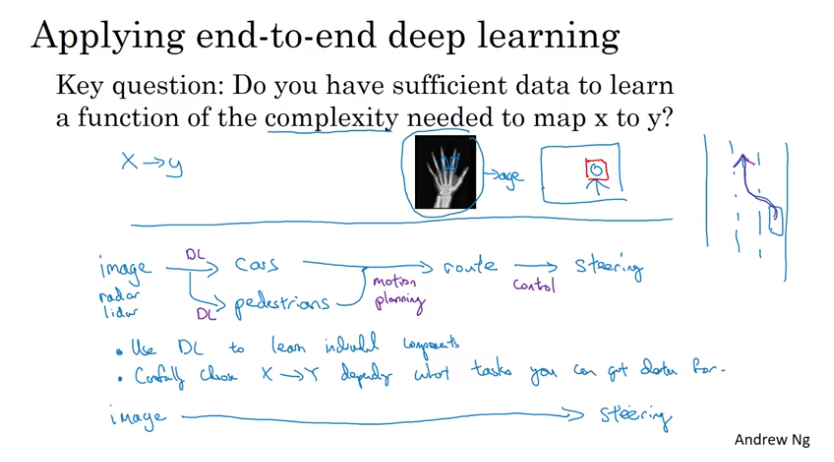 Applying end-to-end deep learning
Key question: Do you have sufficient data to learn
a function of the complexity needed to map x to y?
X → y
→ age
image DL → cars → route → steering
radar
lidar
DL → pedestrians
motion
planning
control
• Use DL to learn individual components
• Carefully choose X → Y depending what tasks you can get data for.
image → steering
Andrew Ng